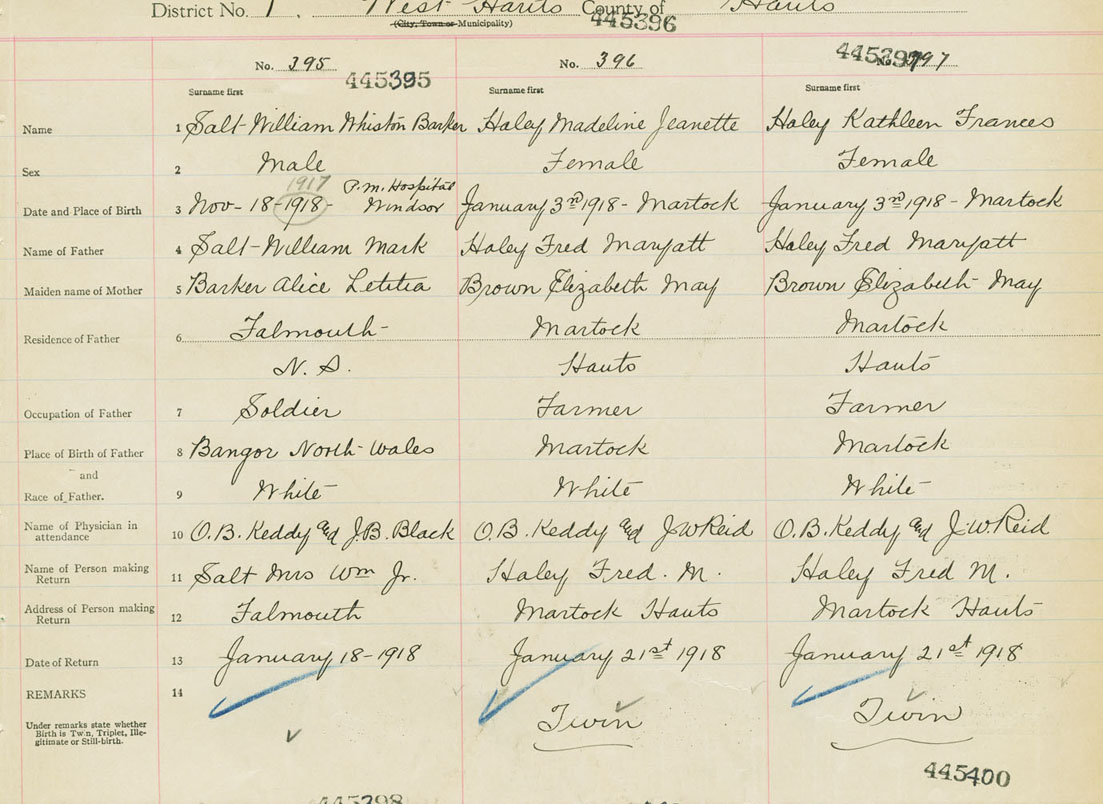 District No. 1. West Hants County of Hants
(City, Town or Municipality)
445396
No. 395 No. 396 No. 397
445395 445397
Surname first Surname first Surname first
Name 1 Salt-William Whiston Barker Haley Madeline Jeanette Haley Kathleen Frances
Sex 2 Male Female Female
1917 P.M. Hospital
Date and Place of Birth 3 Nov-18-1918- Windsor January 3rd 1918- Martock January 3rd 1918- Martock
Name of Father 4 Salt-William Mark Haley Fred Maryatt Haley Fred Maryatt
Maiden name of Mother 5 Barker Alice Letitia Brown Elizabeth May Brown Elizabeth May
Residence of Father 6 Falmouth Martock Martock
N.S. Hants Hants
Occupation of Father 7 Soldier Farmer Farmer
Place of Birth of Father 8 Bangor North-Wales Martock Martock
and
Race of Father. 9 White White White
Name of Physician in attendance 10 O.B. Keddy and J.B. Black O.B. Keddy and J.W Reid O.B. Keddy and J.W. Reid
Name of Person making Return 11 Salt Mrs Wm Jr. Haley Fred. M. Haley Fred M.
Address of Person making Return 12 Falmouth Martock Hants Martock Hants
Date of Return 13 January 18-1918 January 21st 1918 January 21st 1918
REMARKS 14
Under remarks state whether Birth is Twin, Triplet, Ille-
gitimate or Still-birth. Twin Twin
445400
445398